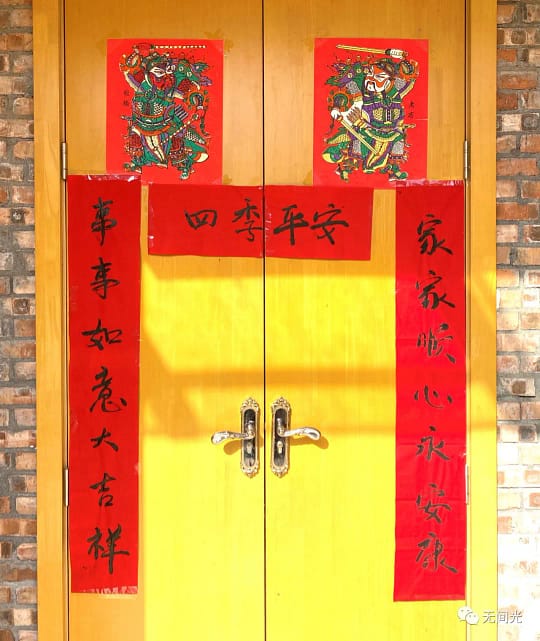 四季平安
家家顺心永安康
事事如意大吉祥
无间光